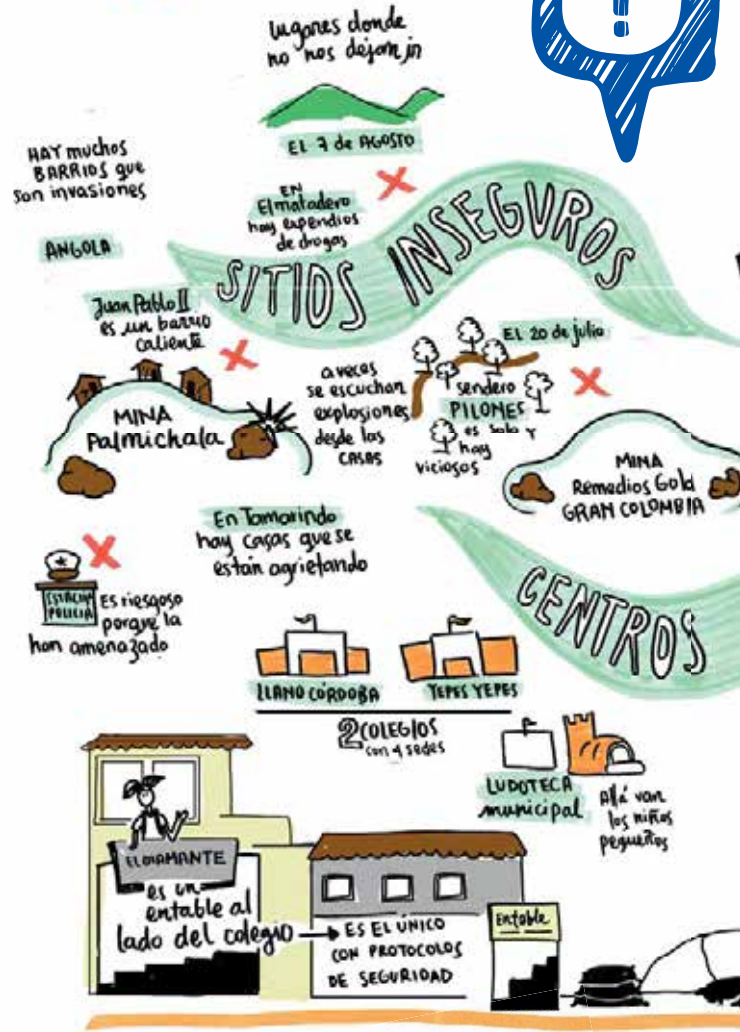 !
lugares donde
no nos dejan ir
EL 7 de AGOSTO
HAY muchos
BARRIOS que
son invasiones
EN
El matadero
hay expendios
de drogas
ANGOLA
SITIOS INSEGUROS
Juan Pablo II
es un barrio
caliente
EL 20 de julio
a veces
se escuchan
explosiones
desde las
CASAS
sendero
PILONES
es solo y
hay
viciosos
MINA
Palmichala
MINA
Remedios Gold
GRAN COLOMBIA
En Tamarindo
hay casas que se
están agrietando
ESTACIÓN
POLICIA
Es riesgoso
porque la
han amenazado
CENTROS
LLANO CÓRDOBA
YEPES YEPES
2 COLEGIOS
con 4 sedes
LUDOTECA
municipal
Allá van
los niños
pequeños
EL DIAMANTE
es un
entable al
lado del colegio
ES EL ÚNICO
CON PROTOCOLOS
DE SEGURIDAD
Entable